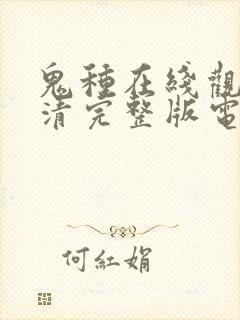 鬼種在綫觀
清完整版電
何紅娟